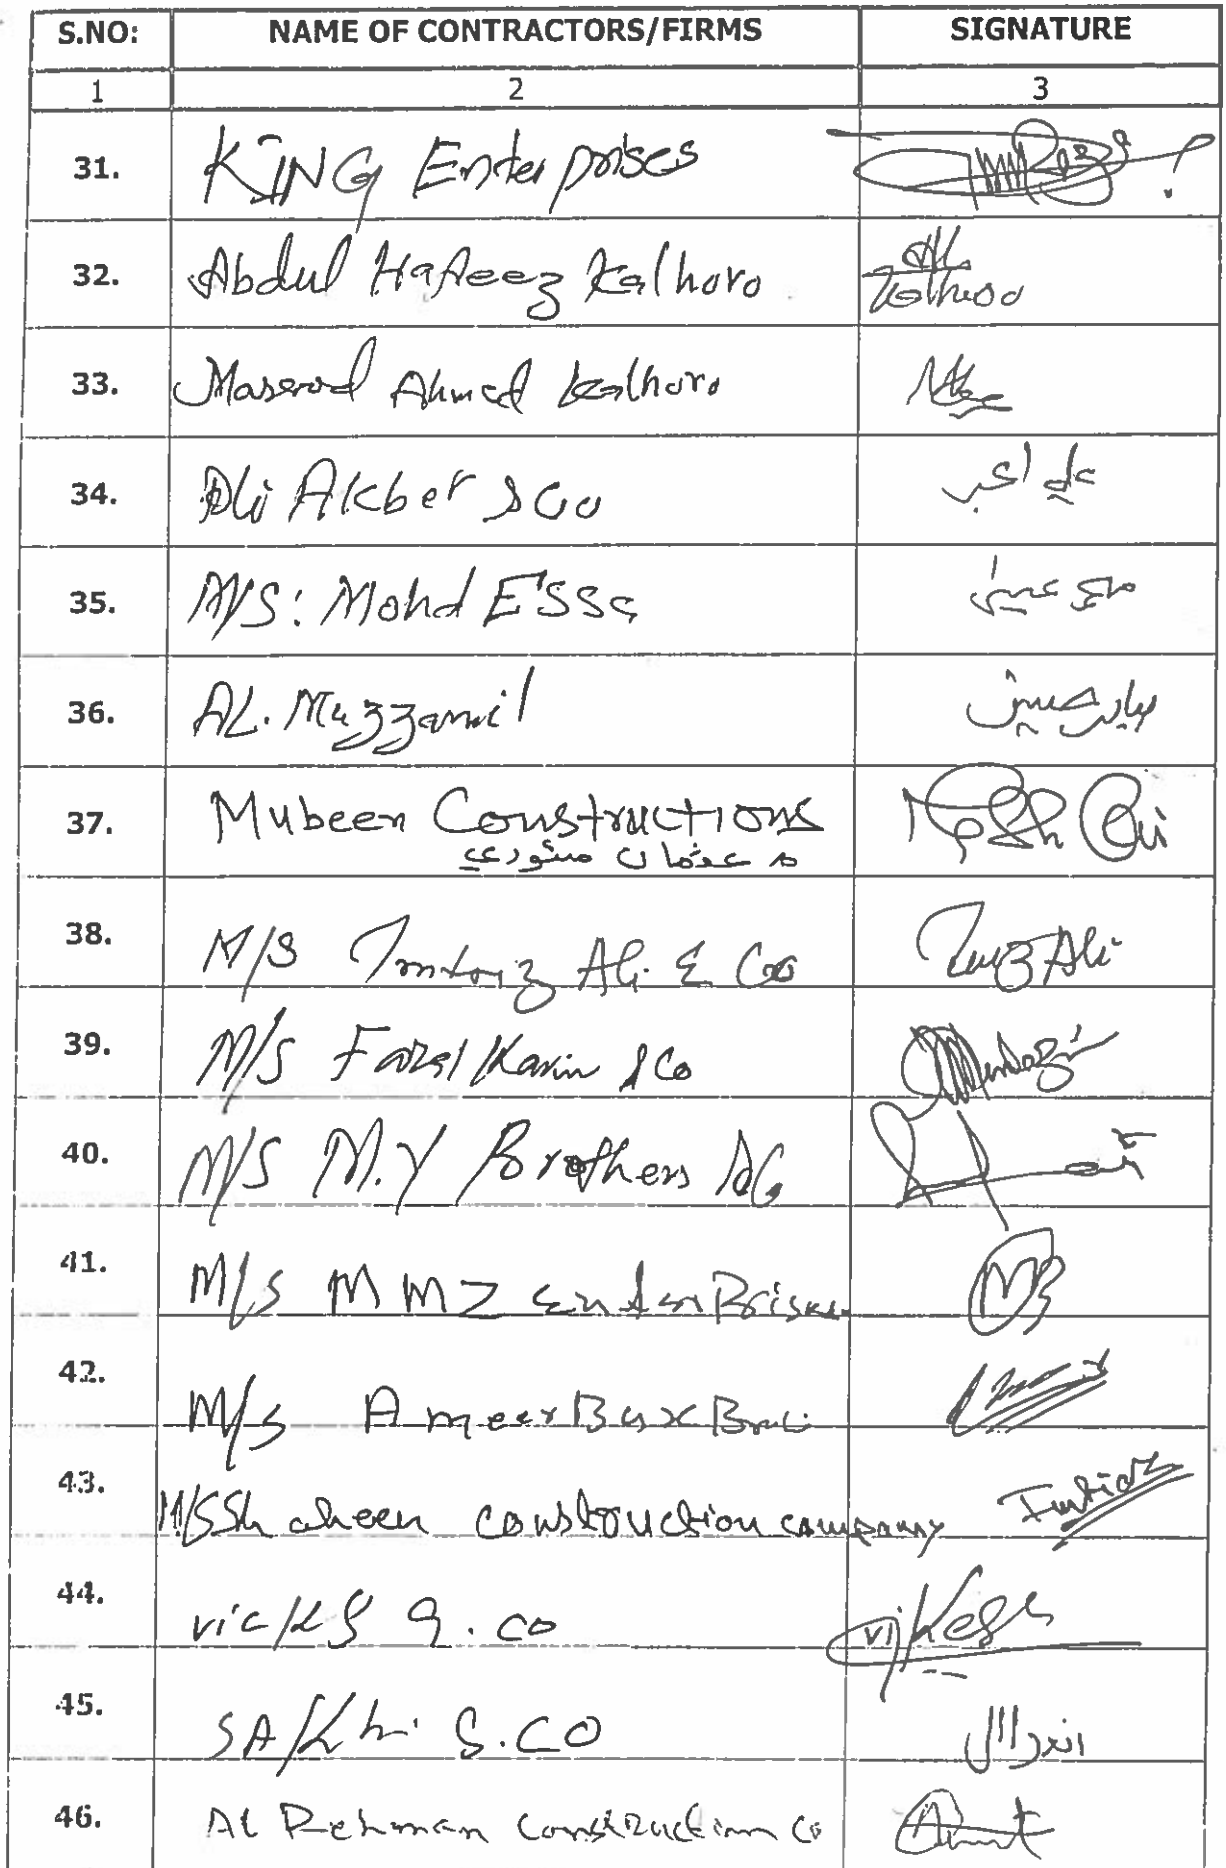 S.NO: NAME OF CONTRACTORS/FIRMS SIGNATURE
1 2 3
31. KING Enterprises
32. Abdul Hafeez Kalhoro Kalhoro
33. Masood Ahmed Kalhoro
34. Ali Akber & Co علي اكبر
35. M/S: Mohd Essa محمد عيسىٰ
36. AL. Muzzamil حسين
37. Mubeen Constructions
عثمان
38. M/S Imtaiz Ali & Co Ali
39. M/S Fazal Karim & Co
40. M/S M.Y Brothers & Co
41. M/S M M Z EnterPrises
42. M/S Ameer Bux
43. M/S Shaheen construction company Imtiaz
44. vicky & . co vikesh
45. SAKhi & . CO اندر لال
46. Al Rehman Construction Co